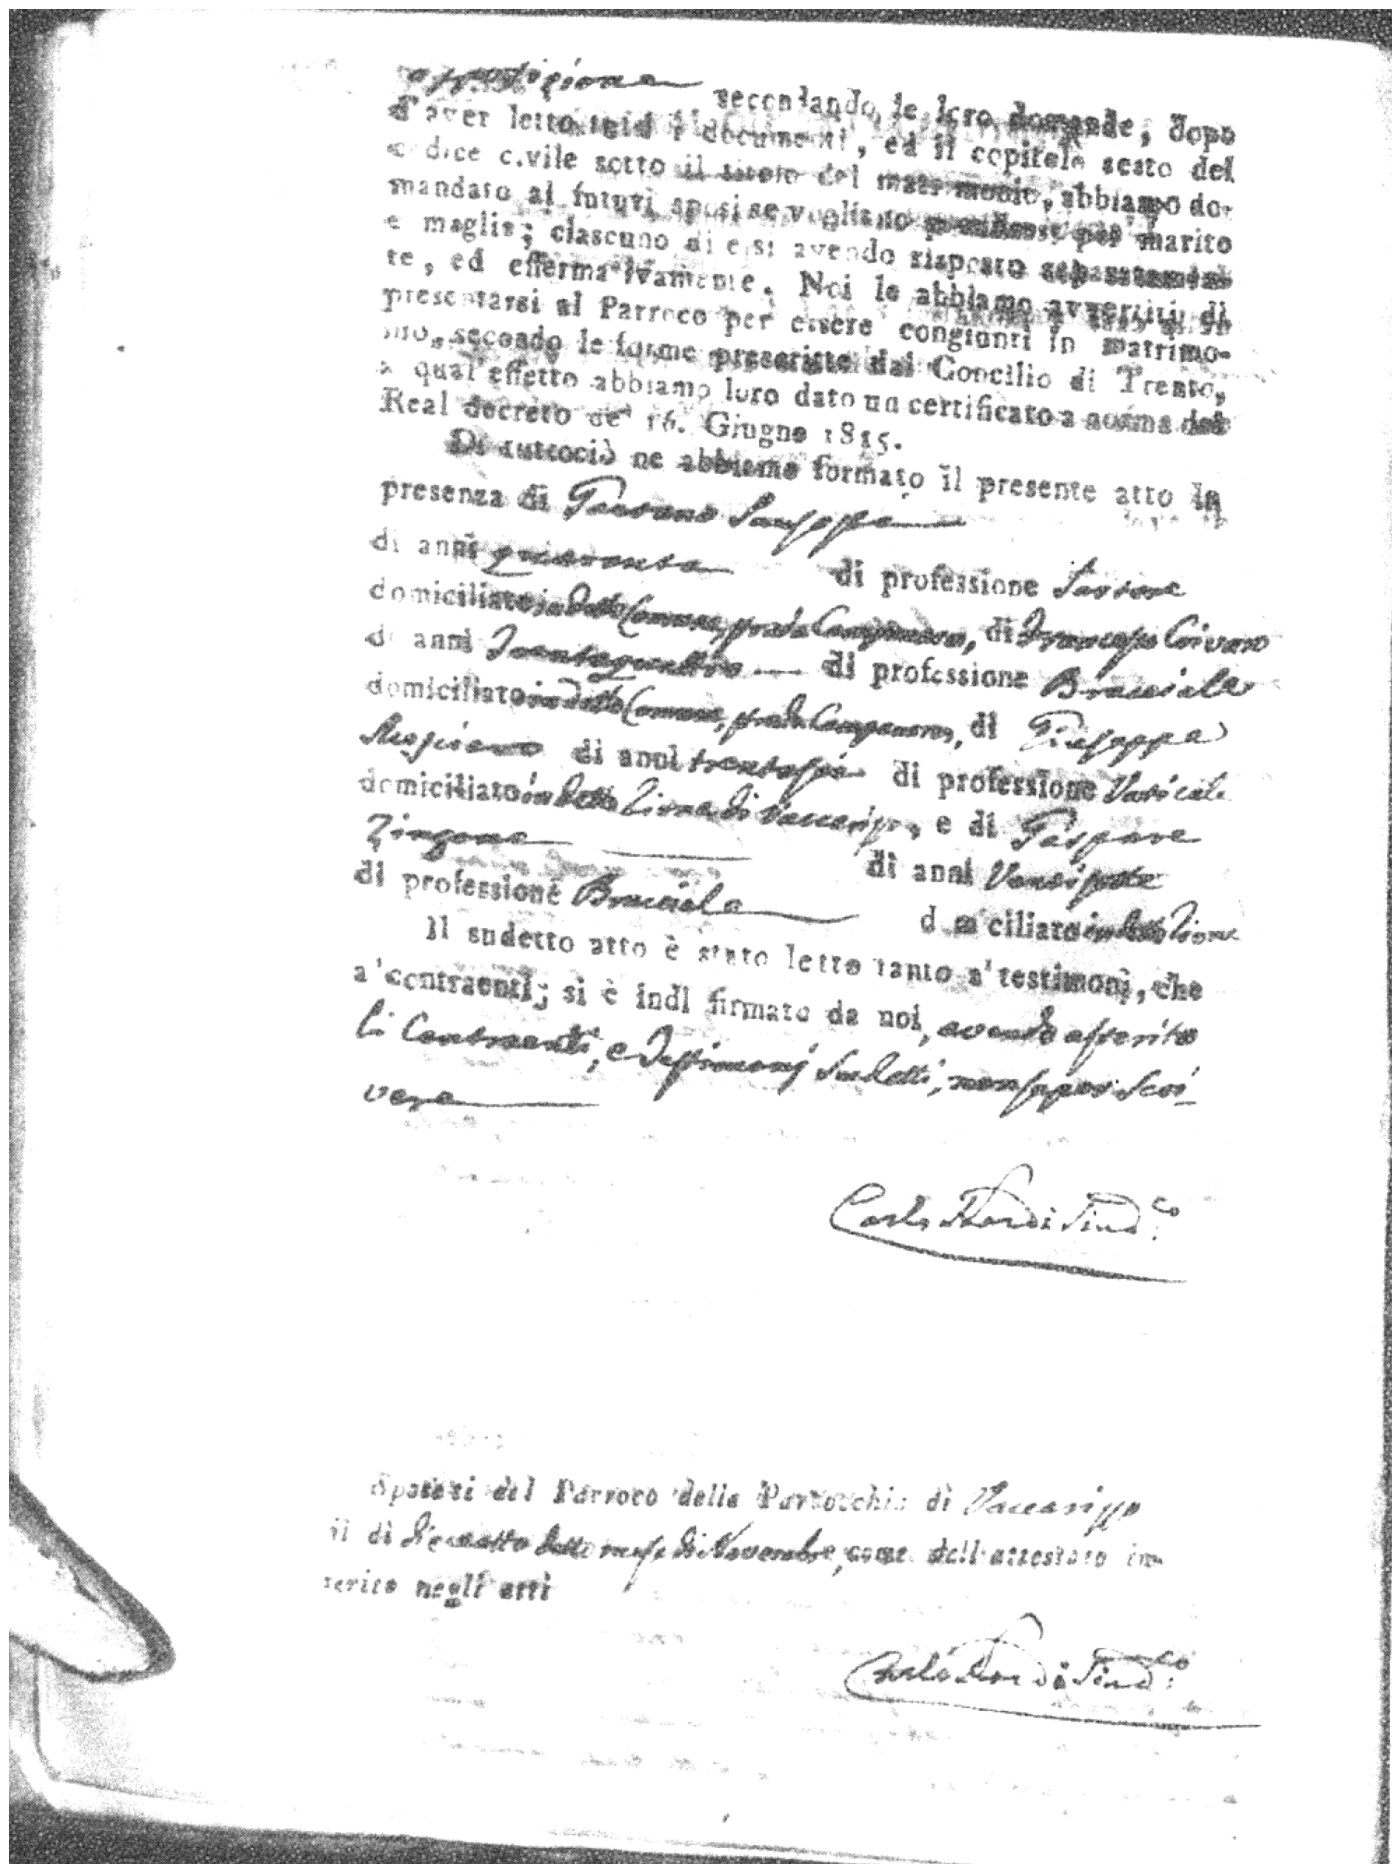 opposizione secondando le loro domande, dopo
d'aver letto tutti i documenti, ed il capitolo sesto del
codice civile sotto il titolo del matrimonio, abbiamo do-
mandato ai futuri sposi se vogliano prendersi per marito
e moglie; ciascuno di essi avendo risposto separatamen-
te, ed effermativamente. Noi le abbiamo avvertiti di
presentarsi al Parroco per essere congionti in matrimo-
nio, secondo le forme prescritte dal Concilio di Trento,
a qual'effetto abbiamo loro dato un certificato a norma del
Real decreto de' 16. Giugno 1815.
Di tuttociò ne abbiamo formato il presente atto in
presenza di Giuseppe
di anni quaranta di professione Sartore
domiciliato in detto Comune, di Francesco
di anni Trentaquattro di professione Bracciale
domiciliato in detto Comune, di Giuseppe
di anni trentasei di professione Vaticale
domiciliato in detto Rione di Vaccarizzo, e di Gaspare
Zingone di anni Ventisette
di professione Bracciale domiciliato in detto Rione
Il sudetto atto è stato letto tanto a' testimonj, che
a' contraenti; si è indi firmato da noi, avendo asserito
li Contraenti, e Testimonj Sudetti, non saper Scri-
vere
Carlo Sind.co
Sposati dal Parroco della Parrocchia di Vaccarizzo
il dì Dieceotto detto mese di Novembre, come dall'attestato in-
serito negli atti
Carlo Sind.co